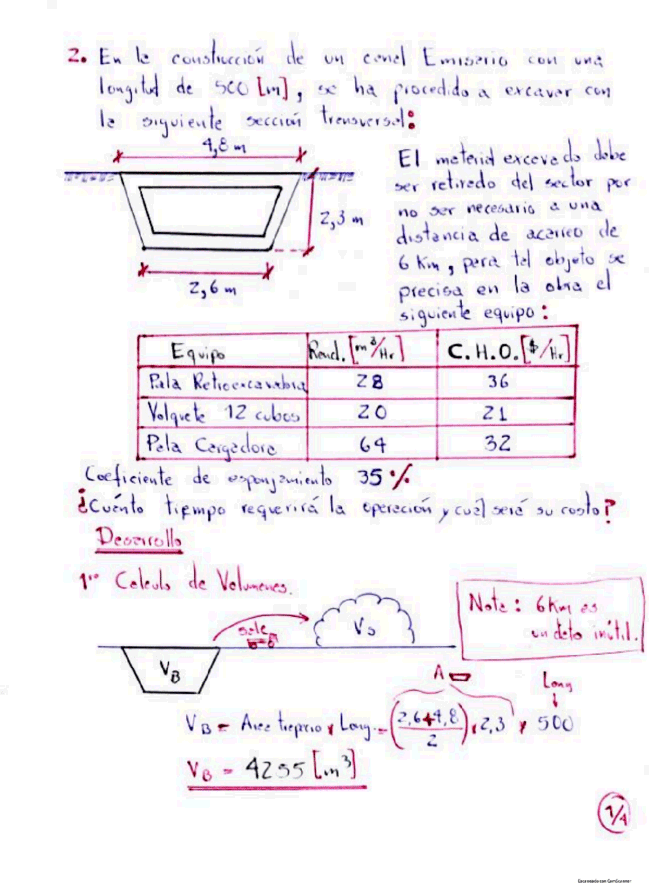 2. En la construcción de un canal Emisario con una
longitud de 500 [m], se ha procedido a excavar con
la siguiente sección transversal:
4,8 m
2,3 m
2,6 m
El material excavado debe
ser retirado del sector por
no ser necesario a una
distancia de acarreo de
6 Km, para tal objeto se
precisa en la obra el
siguiente equipo:
Equipo Rend. [m³/Hr] C.H.O. [$/Hr]
Pala Retroexcavadora 28 36
Volquete 12 cubos 20 21
Pala Cargadora 64 32
Coeficiente de esponjamiento 35 %
¿Cuánto tiempo requerirá la operación y cual será su costo?
Desarrollo
1ro Calculo de Volumenes.
Nota: 6 Km es
un dato inútil.
sale
Vs
VB
A
Long
VB = Area trapecio x Long. = (2,6+4,8/2) x 2,3 x 500
VB = 4255 [m³]
1/4
Escaneado con CamScanner